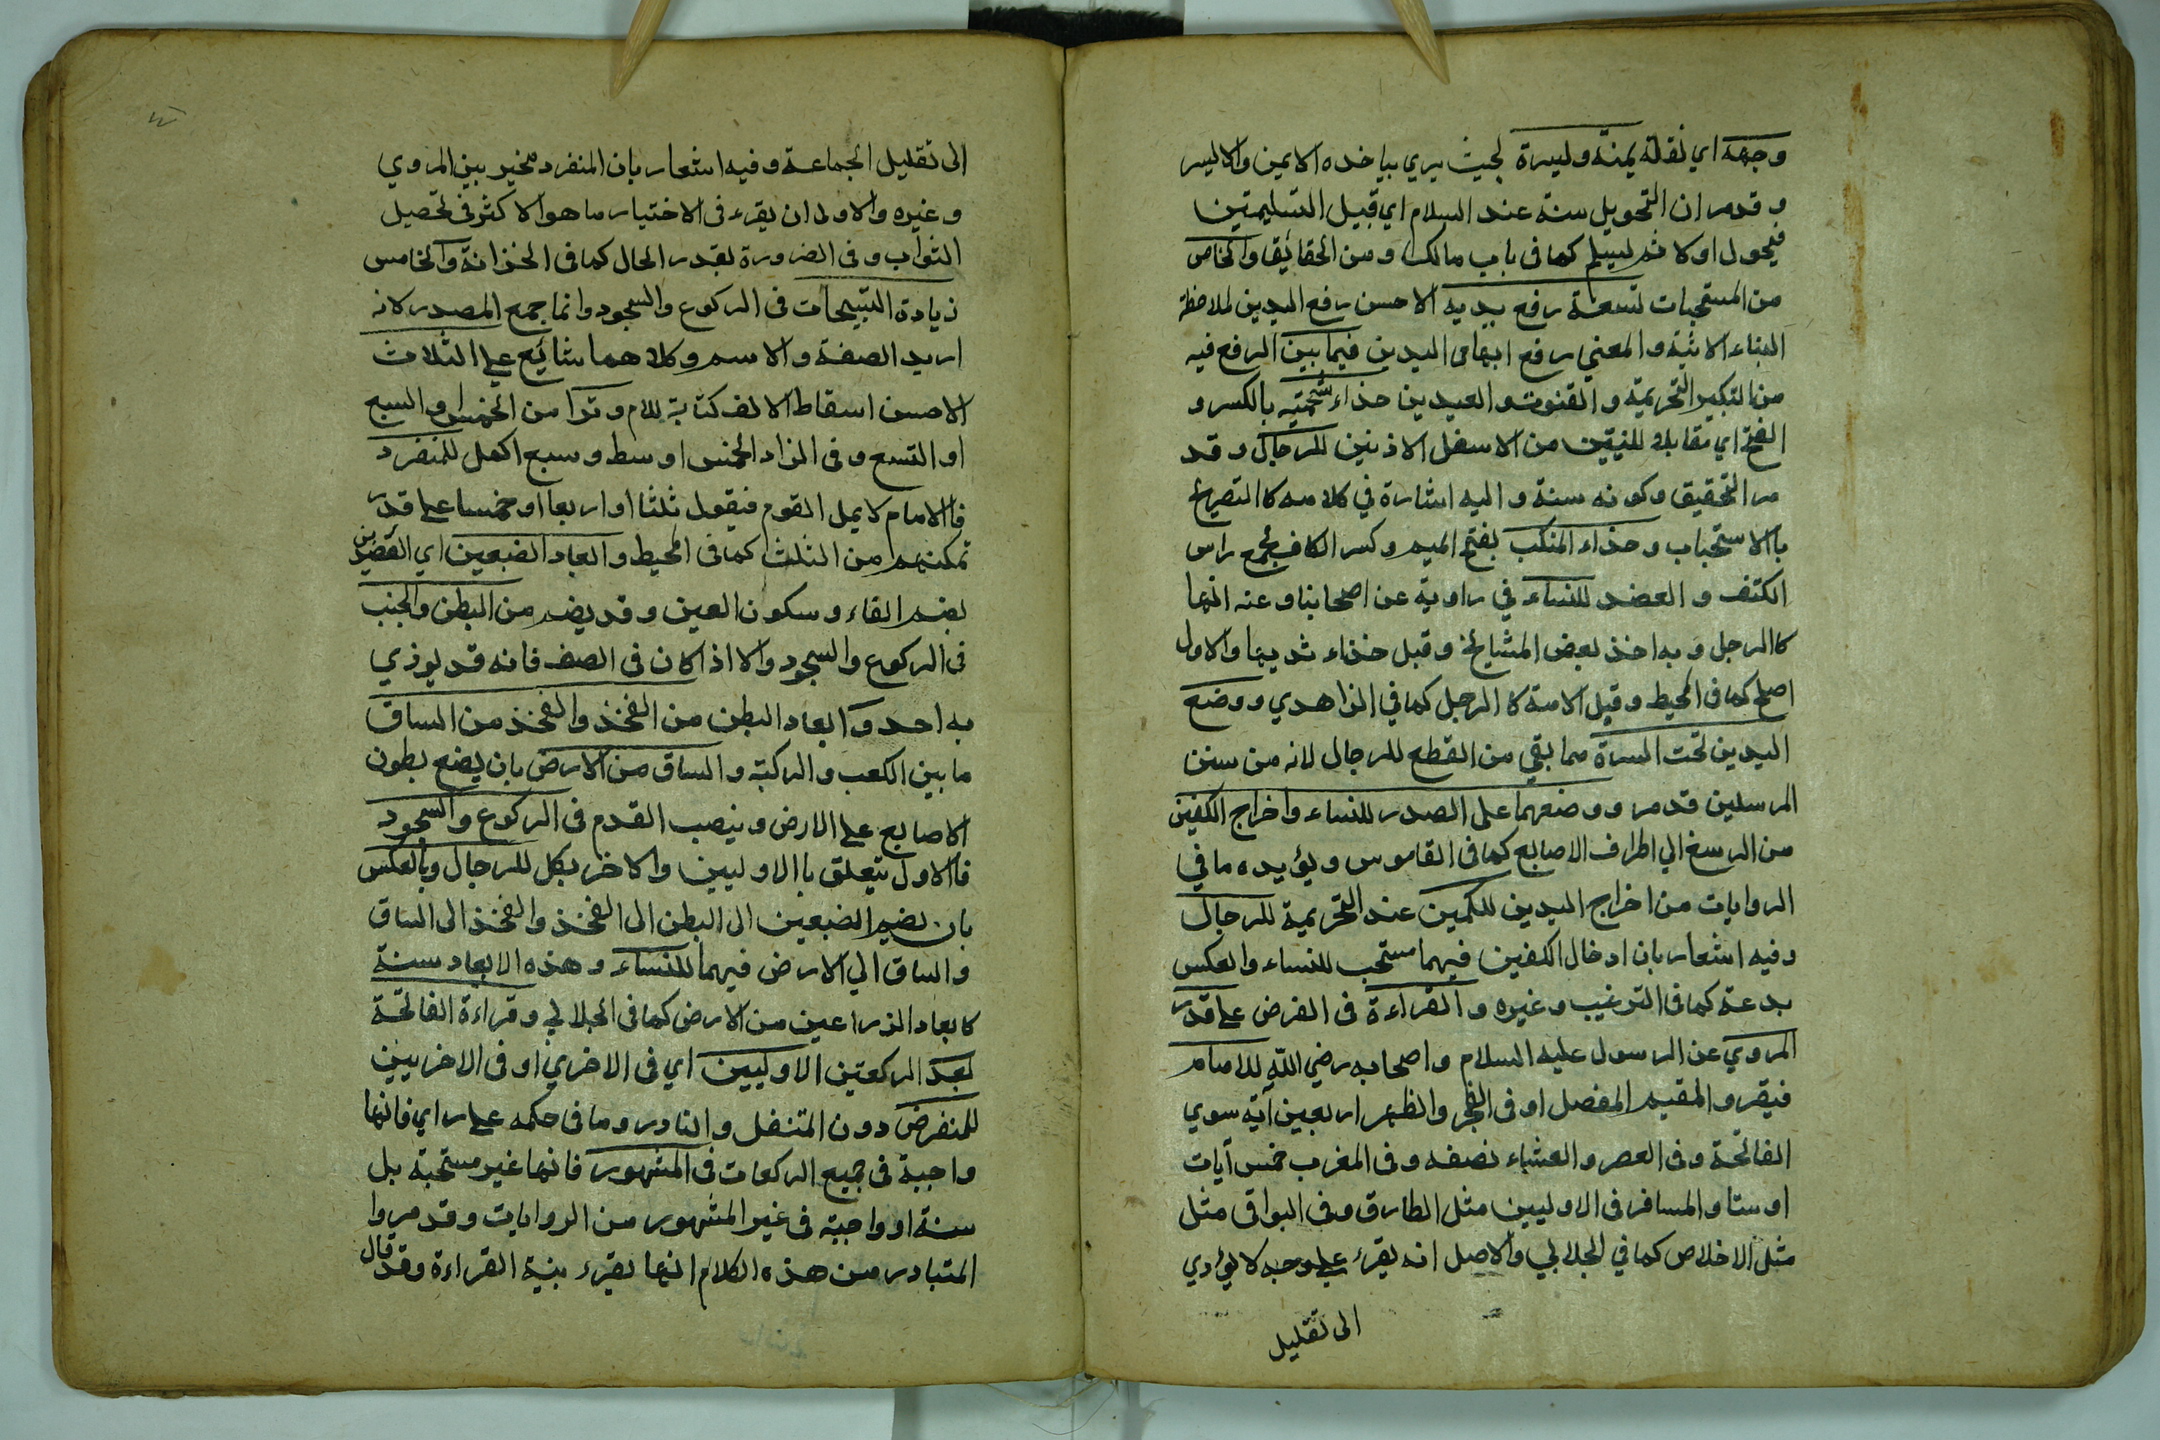 وجهه اي نقله يمنة وليسرة لحيث يري بياخده الايمن والاليسر
وقد مر ان التحويل سنة عند السلام اي قبيل التسليمتين
فيحول اولا ثم ليسلم كما فى باب مالك ومن الحقائق والخامس
من المستحبات لتسعة رفع يديه الاحسن رفع اليدين لملاحظة
البناء الاتية والمعني رفع ابهامى اليدين فيما بين الرفع فيه
من التكبير التحريمة والقنوت والعيدين حذاء شحمتيه بالكسر و
الفتح اي تقابلا للنيتين من الاسفل الاذنين للرجال وقد
مر التحقيق وكونه سنة واليه اشارة في كلامه كالتصريح
بالاستحباب وحذاء المنكب بفتح الميم وكسر الكاف مجمع راس
الكتف والعضد للنساء في راوية عن اصحابنا وعنه انها
كالرجل وبه اخذ بعض المشايخ وقبل حذاء ثدييها والاول
اصح كما فى المحيط وقيل الامة كا الرجل كما في الزاهدي ووضع
اليدين تحت السرة مما بقي من القطع للرجال لانه من سنن
المرسلين قد مر ووضعهما على الصدر للنساء واخراج الكفين
من الرسغ الي اطراف الاصابع كما فى القاموس ويؤيده ما في
الروايات من اخراج اليدين للكمين عند التحريمة للرجال
وفيه اشعار بان ادخال الكفين فيهما مستحب للنساء والعكس
بدعة كما فى الترغيب وغيره والقراءة فى الفرض على قدر
المروي عن الرسول عليه السلام واصحابه رضي الله للامام
فيقرو المقيم المفصل او فى الفجر والظهر اربعين آية سوي
الفاتحة وفى العصر والعشاء نصفه وفى المغرب خمس آيات
او ستا والمسافر فى الاوليين مثل الطارق وفى البواقى مثل
مثل الاخلاص كما في الجلالي والاصل انه يقرء على وجه لا يؤدي
الى تقليل
الى تقليل الجماعة وفيه اشعار بان المنفرد مخير بين المروي
وغيره والاولى ان يقرء فى الاختيار ما هو الاكثر فى تحصيل
الثواب وفى الضرورة بقدر الحال كما فى الخزانة والخامس
زيادة التسبيحات فى الركوع والسجود وانما جمع المصدر لانه
اريد الصفة والاسم وكلاهما شايع على الثلاث
الاحسن اسقاط الالف كتابة للام وترا من الخمس او السبع
او التسع وفى الزاد الخمس اوسط وسبع اكمل للمنفرد
فالامام لا يمل القوم فيقول ثلثا او اربعا او خمسا على قدر
تمكنهم من الثلث كما فى المحيط والعاد الضبعين اي العضدين
بضم الفاء وسكون العين وقد يضم من البطن والجنب
فى الركوع والسجود والا اذا كان فى الصف فانه قد يوذي
به احد وابعاد البطن من الفخذ والفخذ من الساق
ما بين الكعب والركبة والساق من الارض بان يضع بطون
الاصابع على الارض وينصب القدم فى الركوع والسجود
فالاول يتعلق بالاوليين والاخر بكل للرجال وبالعكس
بان يضم الضبعين الى البطن الى الفخذ والفخذ الى الساق
والساق الي الارض فيهما للنساء وهذه الابعاد سنة
كابعاد الذراعين من الارض كما فى الجلالي وقراءة الفاتحة
لعد الركعتين الاوليين اي فى الاخري او فى الاخريين
للمفرض دون المتنفل والنادر وما فى حكمه على راي فانها
واجبة فى جميع الركعات فى المشهور فانها غير مستحبة بل
سنة او واجبة فى غير المشهور من الروايات وقد مر وا
المتبادر من هذه الكلام انها تقرء بنية القراءة وقد قال